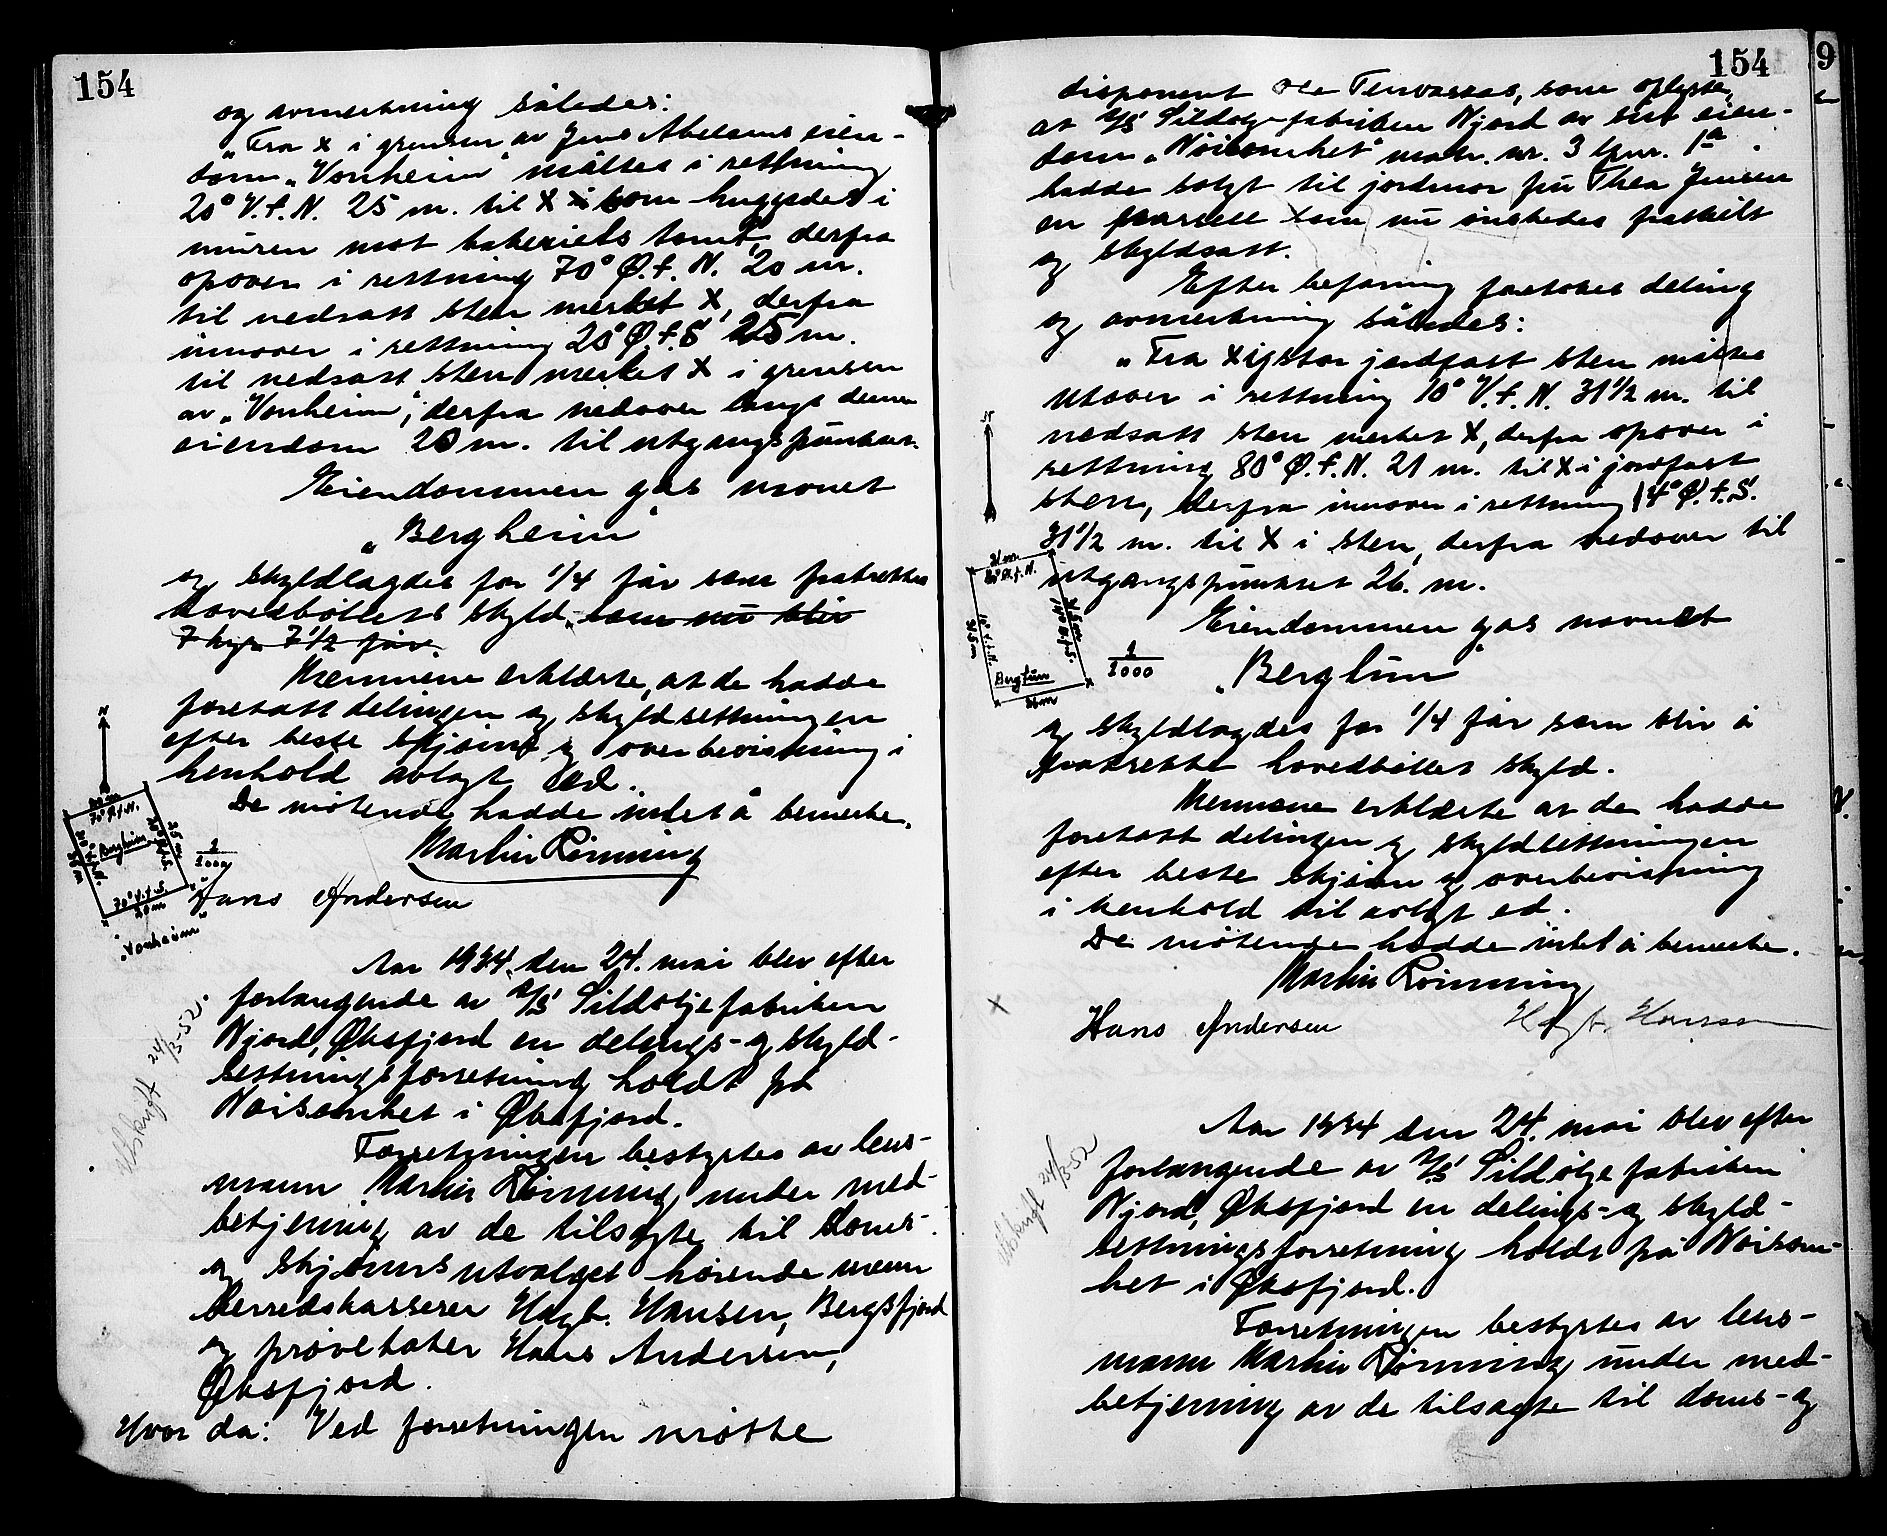 154
og avmerkning således:
„Fra x i grensen av Jens Abelsens eien-
dom „Vonheim" måltes i rettning
20° V.f.N. 25 m. til x som huggedes i
muren mot bakeriets tomt, derfra
opover i rettning 70° Ø.f.N. 20 m.
til nedsatt sten merket x, derfra
innover i rettning 20° Ø.f.S 25 m.
til nedsatt sten merket x i grensen
av „Vonheim", derfra nedover langs denne
eiendom 20 m. til utgangspunktet.
Eiendommen gas navnet
„Bergheim"
og skyldlagdes for 1/4 før som fratrekkes
hovedbøllets skyld, som nu blir
7 før.
Mennene erklærte, at de hadde
foretatt delingen og skyldsettningen
efter beste skjønn og overbevisning i
henhold avlagt ed.
De møtende hadde intet å bemerke.
Martin Rønning
Hans Andersen
N
20 m
70° Ø.f.N.
25 m
20° V.f.N.
Bergheim
25 m
20° Ø.f.S.
1/1000
70° V.f.S.
20 m
„Vonheim"
Aar 1934, den 24. mai blev efter
forlangende av A/S Sildoljefabrikken
Njord, Øksfjord en delings- og skyld-
settningsforretning holdt på
Nøisomhet i Øksfjord.
Utskrift 24/3-52.
Forretningen bestyrtes av lens-
mann Martin Rønning under med-
betjening av de tilsagte til doms-
og skjønnsutvalget hørende menn
herredskasserer Hagb. Hansen, Bergsfjord
og prøvetaker Hans Andersen,
Øksfjord.
Hvor da: Ved forretningen møtte
154
9
disponent Ole, som oplyste,
at A/S Sildoljefabrikken Njord av sin eien-
dom „Nøisomhet" matr. nr. 3 lpnr. 1a
hadde solgt til jordmor fru Thea Jensen
en parsell som nu ønskedes fraskilt
og skyldsatt.
Efter befaring foretokes deling
og avmerkning således:
„Fra x i stor jordfast sten måltes
utover i rettning 10° V.f.N. 31 1/2 m. til
nedsatt sten merket x, derfra opover i
rettning 80° Ø.f.N. 21 m. til x i jordfast
sten, derfra innover i rettning 14° Ø.f.S.
31 1/2 m. til x i sten, derfra nedover til
utgangspunktet 26. m.
Eiendommen gas navnet
„Berglun"
og skyldlagdes for 1/4 før som blir å
fratrekke hovedbøllets skyld.
N
21 m
80° Ø.f.N.
31,5 m
10° V.f.N.
31,5 m
14° Ø.f.S.
Berglun
26 m
1/1000
Mennene erklærte at de hadde
foretatt delingen og skyldsettningen
efter beste skjønn og overbevisning
i henhold til avlagt ed.
De møtende hadde intet å bemerke.
Martin Rønning
x
Hans Andersen Hagb. Hansen
Aar 1934 den 24. mai blev efter
forlangende av A/S Sildoljefabrikken
Njord, Øksfjord en delings- og skyld-
settningsforretning holdt på Nøisom-
het i Øksfjord.
Utskrift 24/3-52
Forretningen bestyrtes av lens-
mann Martin Rønning under med-
betjening av de tilsagte til doms- og